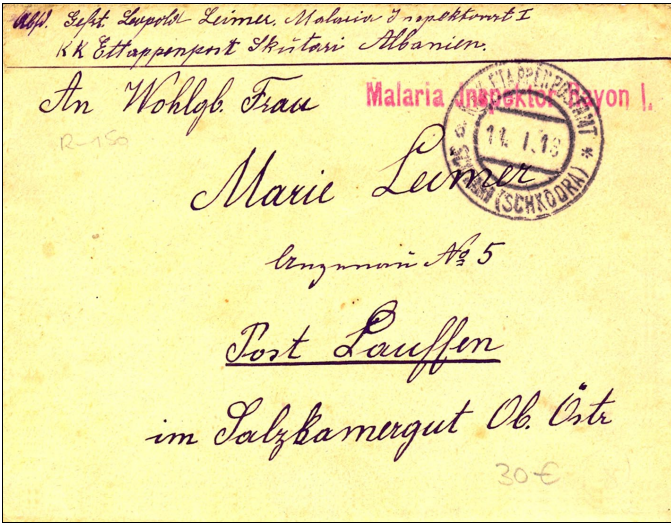 Abs. Gefr Leopold Leimer. Malaria Inspektorat I
KK Ettappenpost Skutari Albanien.
An Wohlgb. Frau
Malaria Inspektor Rayon I.
K.u.K. ETAPPENPOSTAMT * SKUTARI (SCHKODRA)
11. I. 18
R-150
Marie Leimer
No 5
Post Lauffen
im Salzkamergut Ob. Östr
30€